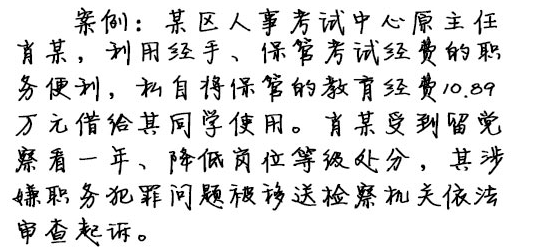 案例：某区人事考试中心原主任
肖某，利用经手、保管考试经费的职
务便利，私自将保管的教育经费10.89
万元借给其同学使用。肖某受到留党
察看一年、降低岗位等级处分，其涉
嫌职务犯罪问题被移送检察机关依法
审查起诉。